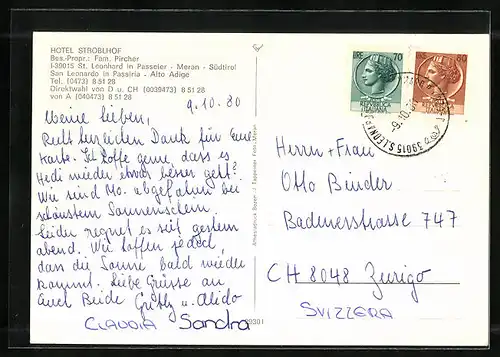 HOTEL STROBLHOF
Bes.-Propr.: Fam. Pircher
I-39015 St. Leonhard in Passeier - Meran - Südtirol
San Leonardo in Passiria - Alto Adige
Tel. (0473) 8 51 28
Direktwahl von D u. CH (0039473) 8 51 28
von A (040473) 8 51 28
9.10.80
Meine Lieben,
Recht herzlichen Dank für Eure
Karte. Ich hoffe gerne, dass es
Hedi wieder etwas besser geht?
Wir sind Mo. abgefahren bei
schönstem Sonnenschein,
leider regnet es seit gestern
abend. Wir hoffen jedoch,
dass die Sonne bald wieder
kommt. Liebe Grüsse an
Euch Beide
u. Aldo
CLAUDIA Sandra
LIRE 70
REPUBBLICA ITALIANA
LIRE 80
39015 S. LEONARDO
Herrn + Frau
Otto Binder
Badenerstrasse 747
CH 8048 Zurigo
SVIZZERA